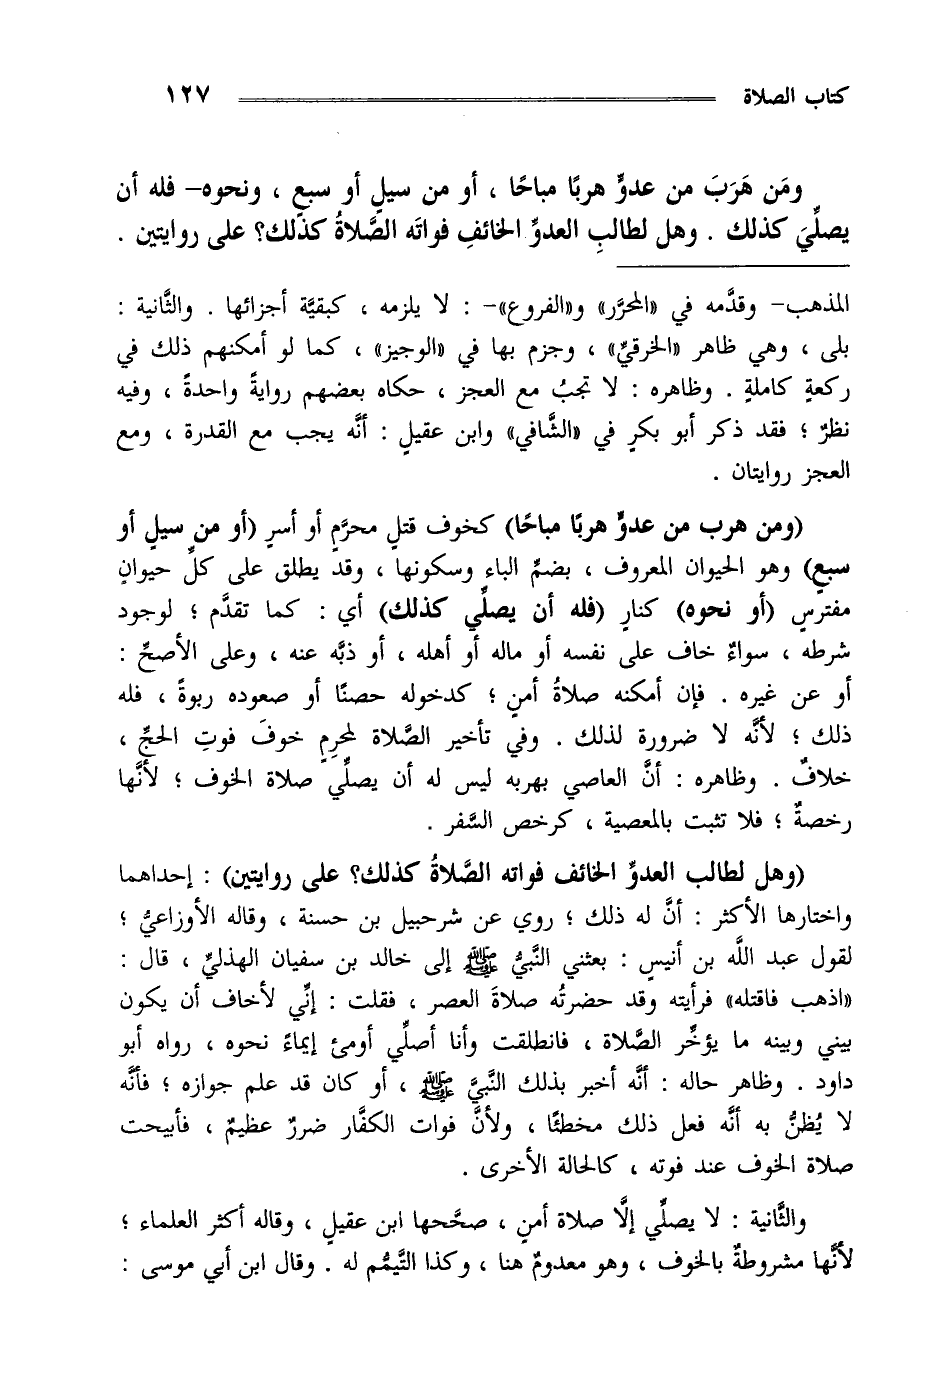 كتاب الصلاة ١٢٧
ومَن هَرَبَ من عدوٍّ هربًا مباحًا ، أو من سيلٍ أو سبعٍ ، ونحوه– فله أن
يصلِّيَ كذلك . وهل لطالبِ العدوِّ الخائفِ فواتَه الصَّلاةُ كذلك؟ على روايتين .
المذهب– وقدَّمه في «المحرَّر» و«الفروع»– : لا يلزمه ، كبقيَّة أجزائها . والثَّانية :
بلى ، وهي ظاهر «الخرقيِّ» ، وجزم بها في «الوجيز» ، كما لو أمكنهم ذلك في
ركعةٍ كاملةٍ . وظاهره : لا تجبُ مع العجز ، حكاه بعضهم روايةً واحدةً ، وفيه
نظرٌ ؛ فقد ذكر أبو بكرٍ في «الشَّافي» وابن عقيلٍ : أنَّه يجب مع القدرة ، ومع
العجز روايتان .
(ومن هرب من عدوٍّ هربًا مباحًا) كخوف قتلٍ محرَّمٍ أو أسرٍ (أو من سيلٍ أو
سبعٍ) وهو الحيوان المعروف ، بضمِّ الباء وسكونها ، وقد يطلق على كلِّ حيوانٍ
مفترسٍ (أو نحوه) كنارٍ (فله أن يصلِّي كذلك) أي : كما تقدَّم ؛ لوجود
شرطه ، سواءٌ خاف على نفسه أو ماله أو أهله ، أو ذبَّه عنه ، وعلى الأصحِّ :
أو عن غيره . فإن أمكنه صلاةُ أمنٍ ؛ كدخوله حصنًا أو صعوده ربوةً ، فله
ذلك ؛ لأنَّه لا ضرورة لذلك . وفي تأخير الصَّلاة لمحرِمٍ خوفَ فوتِ الحجِّ ،
خلافٌ . وظاهره : أنَّ العاصي بهربه ليس له أن يصلِّي صلاة الخوف ؛ لأنَّها
رخصةٌ ؛ فلا تثبت بالمعصية ، كرخص السَّفر .
(وهل لطالب العدوِّ الخائف فواته الصَّلاةُ كذلك؟ على روايتين) : إحداهما
واختارها الأكثر : أنَّ له ذلك ؛ روي عن شرحبيل بن حسنة ، وقاله الأوزاعيُّ ؛
لقول عبد اللَّه بن أنيسٍ : بعثني النَّبيُّ ﷺ إلى خالد بن سفيان الهذليِّ ، قال :
«اذهب فاقتله» فرأيته وقد حضرتُه صلاةَ العصر ، فقلت : إنِّي لأخاف أن يكون
بيني وبينه ما يؤخِّر الصَّلاة ، فانطلقت وأنا أصلِّي أومئ إيماءً نحوه ، رواه أبو
داود . وظاهر حاله : أنَّه أخبر بذلك النَّبيَّ ﷺ ، أو كان قد علم جوازه ؛ فأنَّه
لا يُظنُّ به أنَّه فعل ذلك مخطئًا ، ولأنَّ فوات الكفَّار ضررٌ عظيمٌ ، فأبيحت
صلاة الخوف عند فوته ، كالحالة الأخرى .
والثَّانية : لا يصلِّي إلَّا صلاة أمنٍ ، صحَّحها ابن عقيلٍ ، وقاله أكثر العلماء ؛
لأنَّها مشروطةٌ بالخوف ، وهو معدومٌ هنا ، وكذا التَّيمُّم له . وقال ابن أبي موسى :